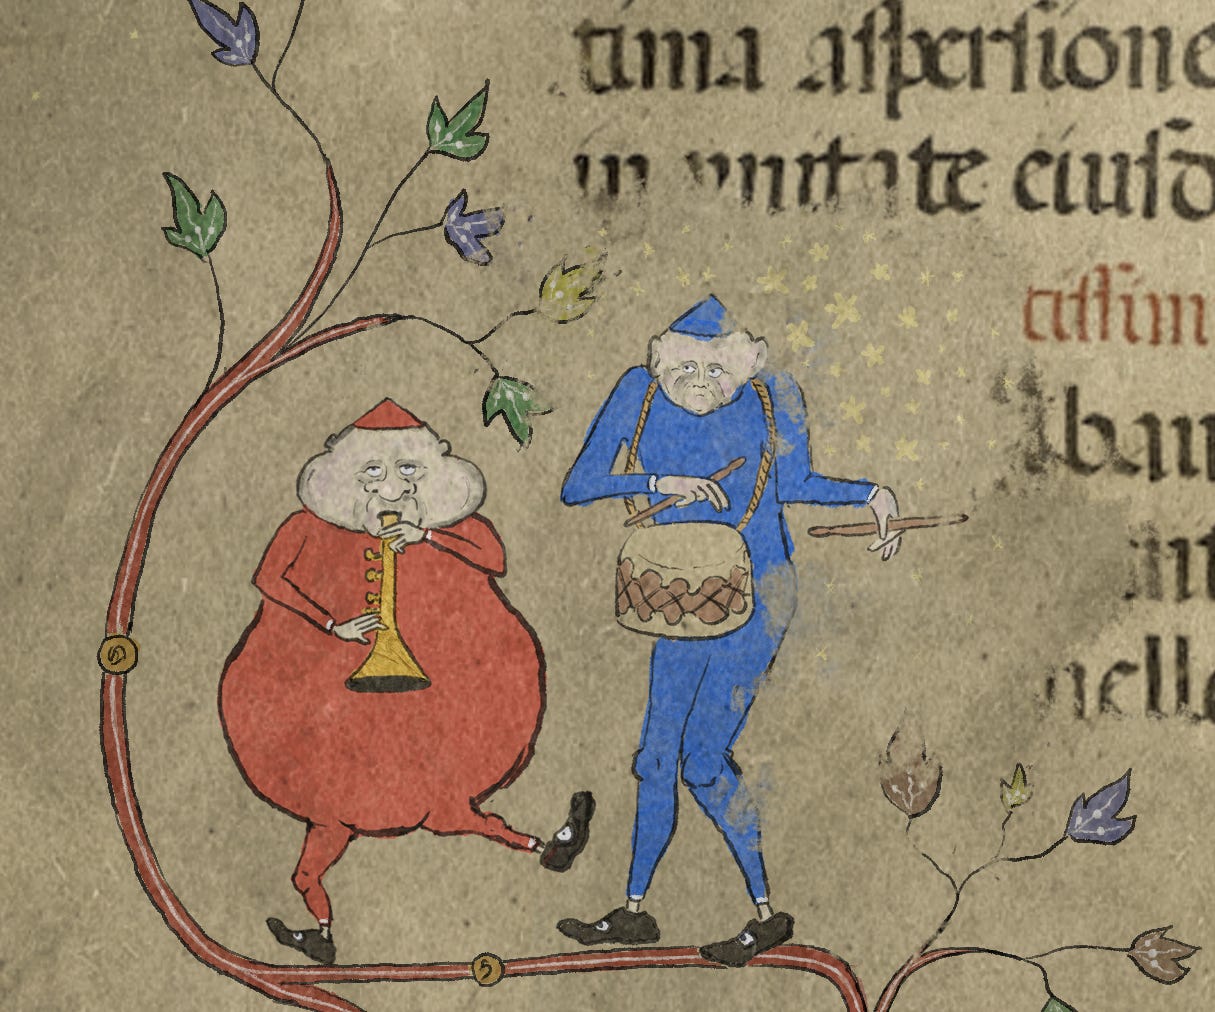 tima aſperſione
in unitate eiuſd
ciſſim
ban
int
nelle
5